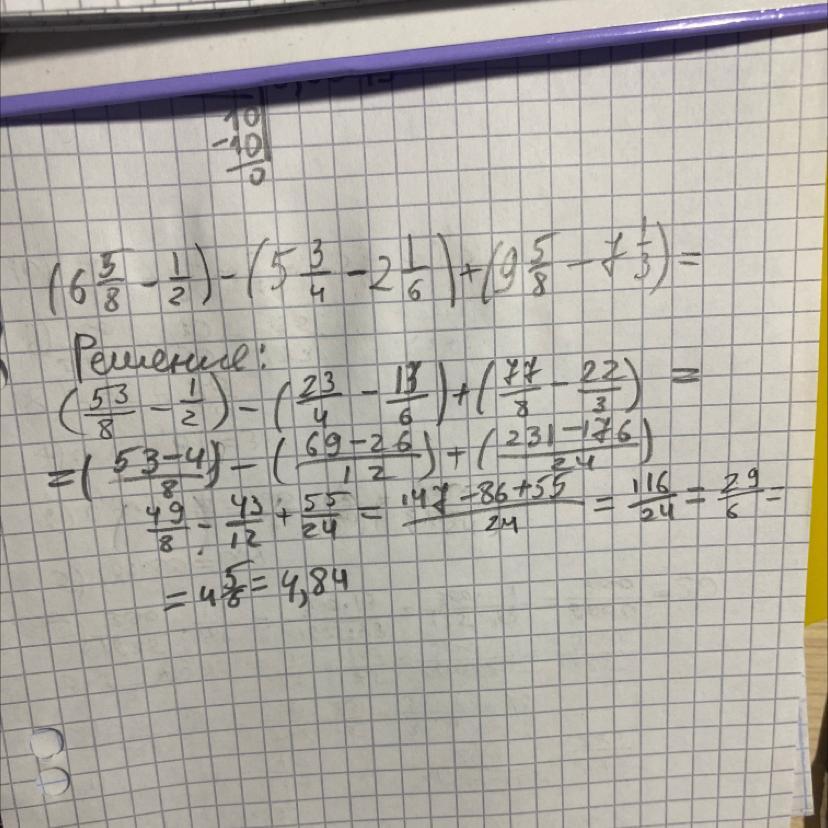 10
-10
0
(6 5/8 - 1/2) - (5 3/4 - 2 1/6) + (9 5/8 - 7 1/3) =
Решение:
(53/8 - 1/2) - (23/4 - 13/6) + (77/8 - 22/3) =
= (53-4/8) - (69-26/12) + (231-176/24)
49/8 - 43/12 + 55/24 = 147-86+55/24 = 116/24 = 29/6 =
= 4 5/6 = 4,84